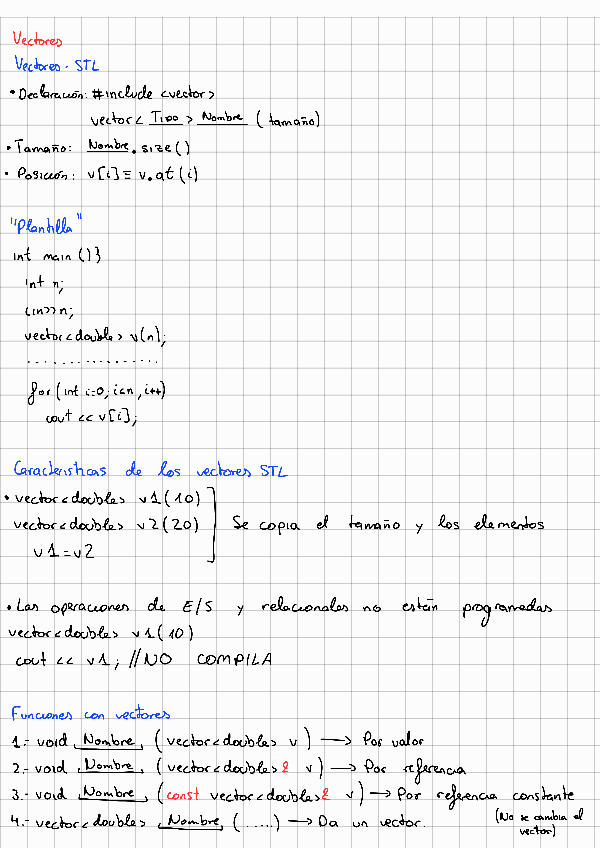 Vectores
Vectores - STL
• Declaración: #include <vector>
vector< Tipo > Nombre (tamaño)
• Tamaño: Nombre.size()
• Posición: v[i] ≡ v.at(i)
"Plantilla"
int main (){
int n;
cin>>n;
vector<double> v(n);
..................
for(int i=0; i<n; i++)
cout << v[i];
Características de los vectores STL
• vector<double> v1(10)
vector<double> v2(20) Se copia el tamaño y los elementos
v1=v2
• Las operaciones de E/S y relacionales no están programadas
vector<double> v1(10)
cout << v1; //NO COMPILA
Funciones con vectores
1.- void Nombre (vector<double> v) → Por valor
2.- void Nombre (vector<double>& v) → Por referencia
3.- void Nombre (const vector<double>& v) → Por referencia constante
4.- vector<double> Nombre (.....) → Da un vector.
(No se cambia el
vector)